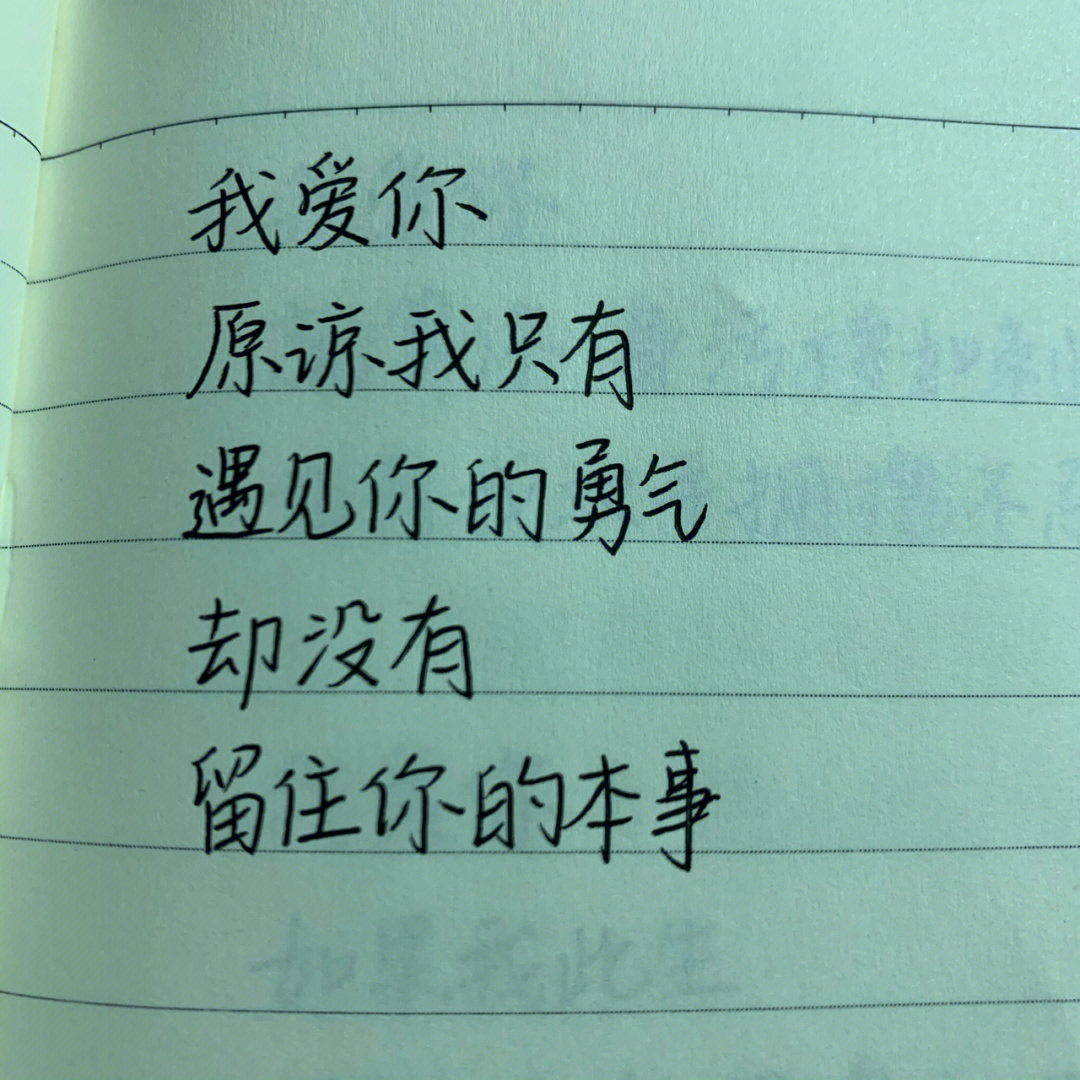 我爱你
原谅我只有
遇见你的勇气
却没有
留住你的本事